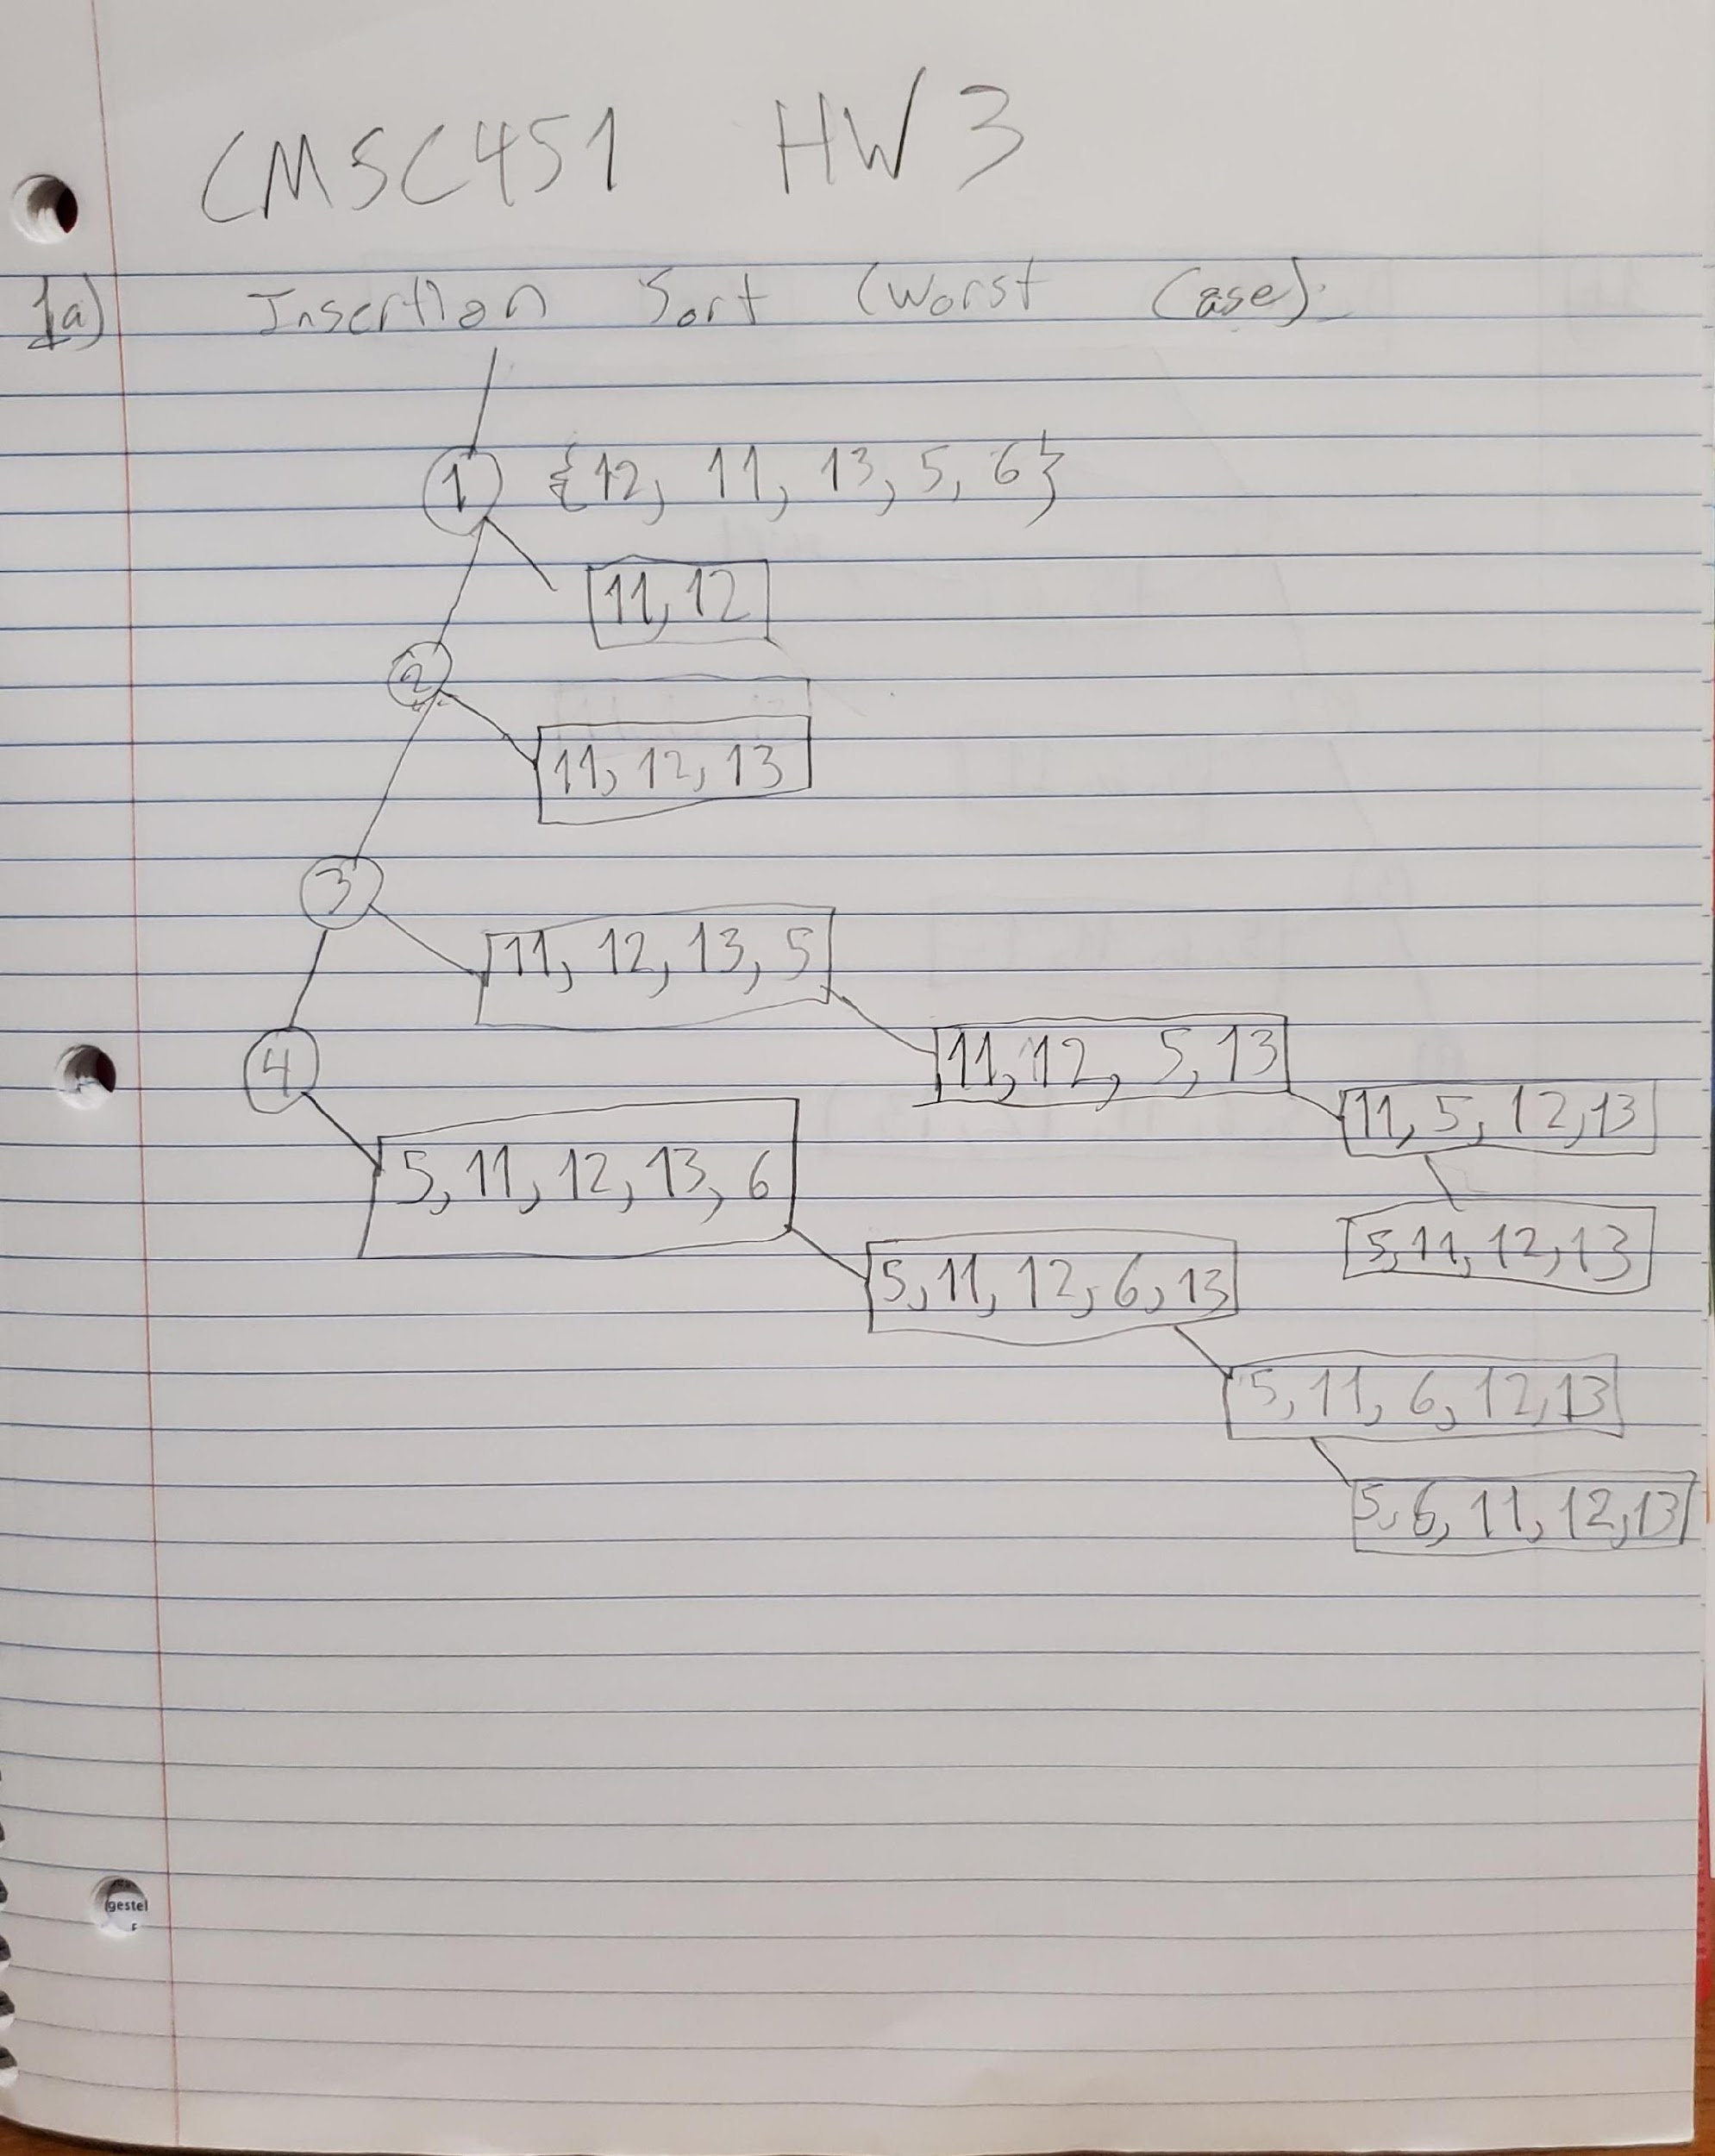 CMSC451 HW 3
1a) Insertion Sort (Worst Case):
1 {12, 11, 13, 5, 6}
11, 12
2
11, 12, 13
3
11, 12, 13, 5
11, 12, 5, 13
4
11, 5, 12, 13
5, 11, 12, 13, 6
5, 11, 12, 13
5, 11, 12, 6, 13
5, 11, 6, 12, 13
5, 6, 11, 12, 13
gestel